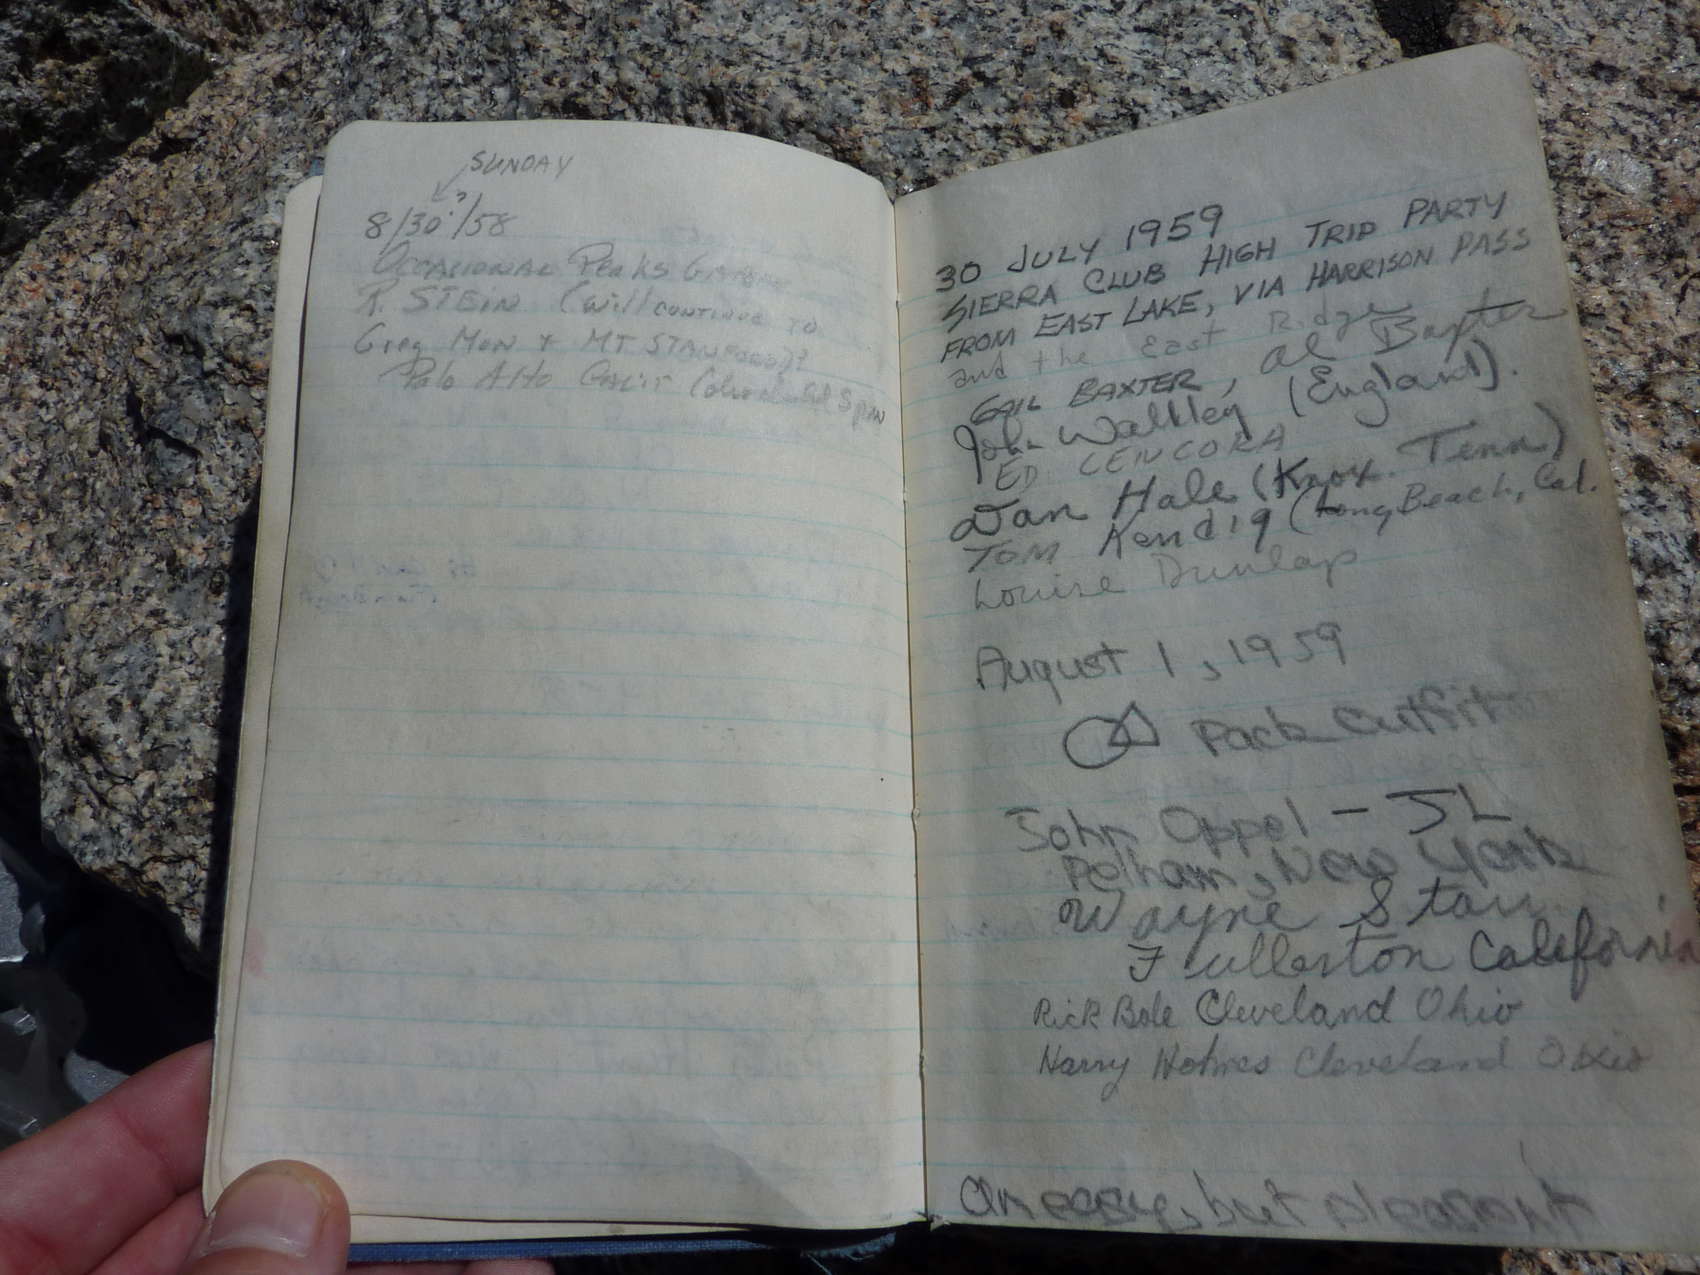 SUNDAY
8/30?/58
OCCASIONAL PEAKS
R. STEIN (will continue to
Greg Mon + MT. STANFORD)?
Palo Alto CALIF
30 JULY 1959
SIERRA CLUB HIGH TRIP PARTY
FROM EAST LAKE, VIA HARRISON PASS
and the East Ridge
GAIL BAXTER, Al Baxter
John Walkley (England).
ED CENCORA
Dan Hale (Knox. Tenn)
TOM Kendig (Long Beach, Cal.
Louise Dunlap
August 1, 1959
Pack Outfit
John Oppel - JL
Pelham, New York
Wayne Starr
Fullerton California
Rick Bole Cleveland Ohio
Harry Holmes Cleveland Ohio
An easy, but pleasant